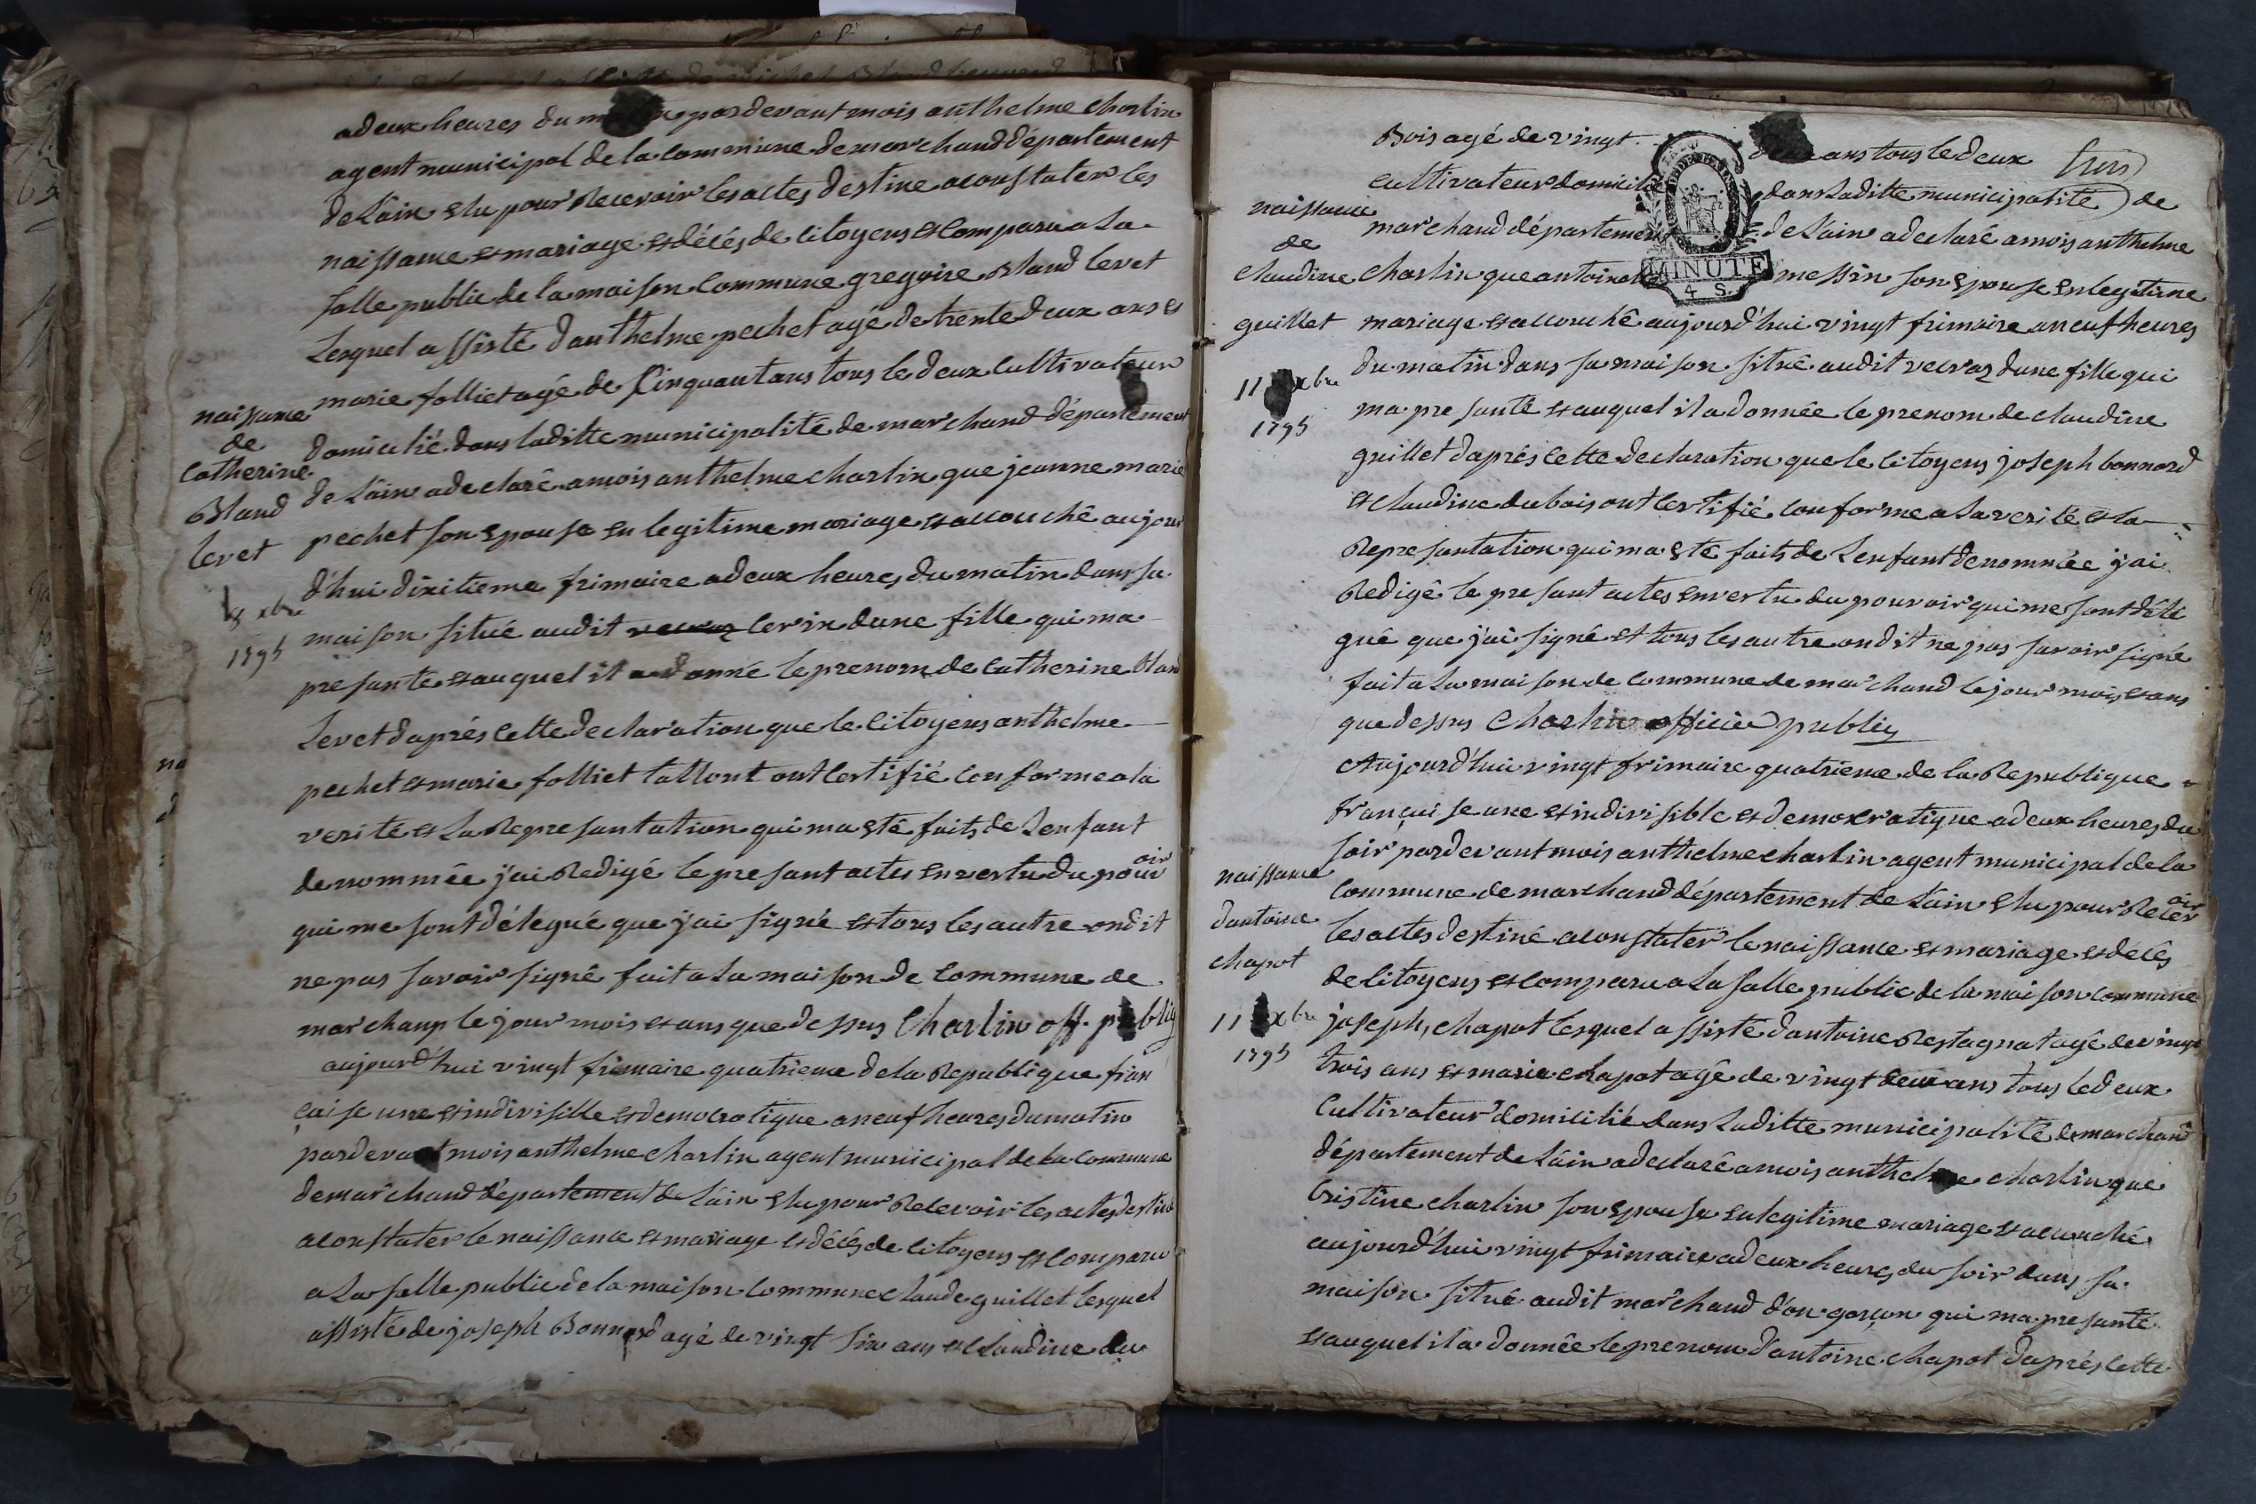 adeux heures du pardevant mois anthelme charlin
agent municipal de la commune de marchand département
de Lâin elu pour Recevoir les actes destine aconstater les
naissance et mariage et décés de citoyens et comparu a La
salle public de la maison commune gregoire Bland levet
Lesquel assisté d'anthelme pechet agé de trente deux ans et
marie folliet agé de Cinquant ans tous le deux cultivateur
naissance
de
catherine
Bland
levet
8 xbre
1795
domicilié dans laditte municipalité de marchand département
de Lâin a declaré amois anthelme charlin que jeanne marie
pechet son epouse en legitime mariage et accouché aujour
d'hui dixitieme frimaire adeux heures du matin dans sa
maison situé audit cevin dune fille qui ma
presanté et auquel il a donné le prenom de catherine Bland
Levet daprés cette declaration que le citoyens anthelme
pechet et marie folliet tallont ont certifié conforme a la
verité et La Represantation qui ma eté faits de Lenfant
denommée j'ai Redigé le presant actes en vertu du pouvoir
qui me sont délegué que j'ai signé et tous les autre ondit
ne pas savoir signé fait a La maison de commune de
marchamp le jour mois et ans que dessus Charlin off. public
aujourd'hui vingt frimaire quatrieme de la Republique fran
çaise une et indivisille et democratique a neuf heures du matin
pardevant mois anthelme charlin agent municipal de La commune
de marchand département de Lain elu pour Recevoir les actes destiné
aconstater le naissance et mariage et décés de citoyens et comparu
a La salle public de la maison commune claude guillet lesquel
assisté de joseph Bonnard agé de vingt six ans et Claudine du
Bois agé de vingt ans tous le deux
trois
cultivateur domicilié dans Laditte municipalité de
naissance
de
claudine
guillet
11 xbre
1795
marchand département de Lain a declaré amois anthelme
MINUTE
4 S.
charlin que antoinette messin son epouse en legitime
mariage et accouché aujourd'hui vingt frimaire a neuf heures
du matin dans sa maison situé audit vervaz dune fille qui
ma presanté et auquel il a donnée le prenom de claudine
guillet d'aprés cette declaration que le citoyens joseph bonnard
et claudine dubois ont certifié conforme a La verité et la
Represantation qui ma eté faits de Lenfant denommée j'ai
Redigé le presant actes en vertu du pouvoir qui me sont déle
gué que j'ai signé et tous les autre ondit ne pas savoir signé
fait a La maison de commune de marchand le jour mois et ans
que dessus Charlin officier public
Aujourd'hui vingt frimaire quatrieme de la Republique
française une et indivisible et democratique adeux heures du
soir pardevant mois anthelme charlin agent municipal de la
naissance
d'antoine
chapot
11 xbre
1795
commune de marchand département de Lain elu pour Recevoir
les actes destiné aconstater le naissance et mariage et décés
de citoyens et comparu a La salle public de la maison commune
joseph chapot lesquel assisté d'antoine Restagnat agé de vingt
trois ans et marie chapot agé de vingt deux ans tous le deux
cultivateur domicilié dans Laditte municipalité de marchand
département de Lâin a declaré amois anthelme charlin que
Cristine charlin son epouse en legitime mariage et accouché
aujourd'hui vingt frimaire adeux heures du soir dans sa
maison situé audit marchand d'on garçon qui ma presanté
et auquel il a donnée le prenom d'antoine chapot daprés cette